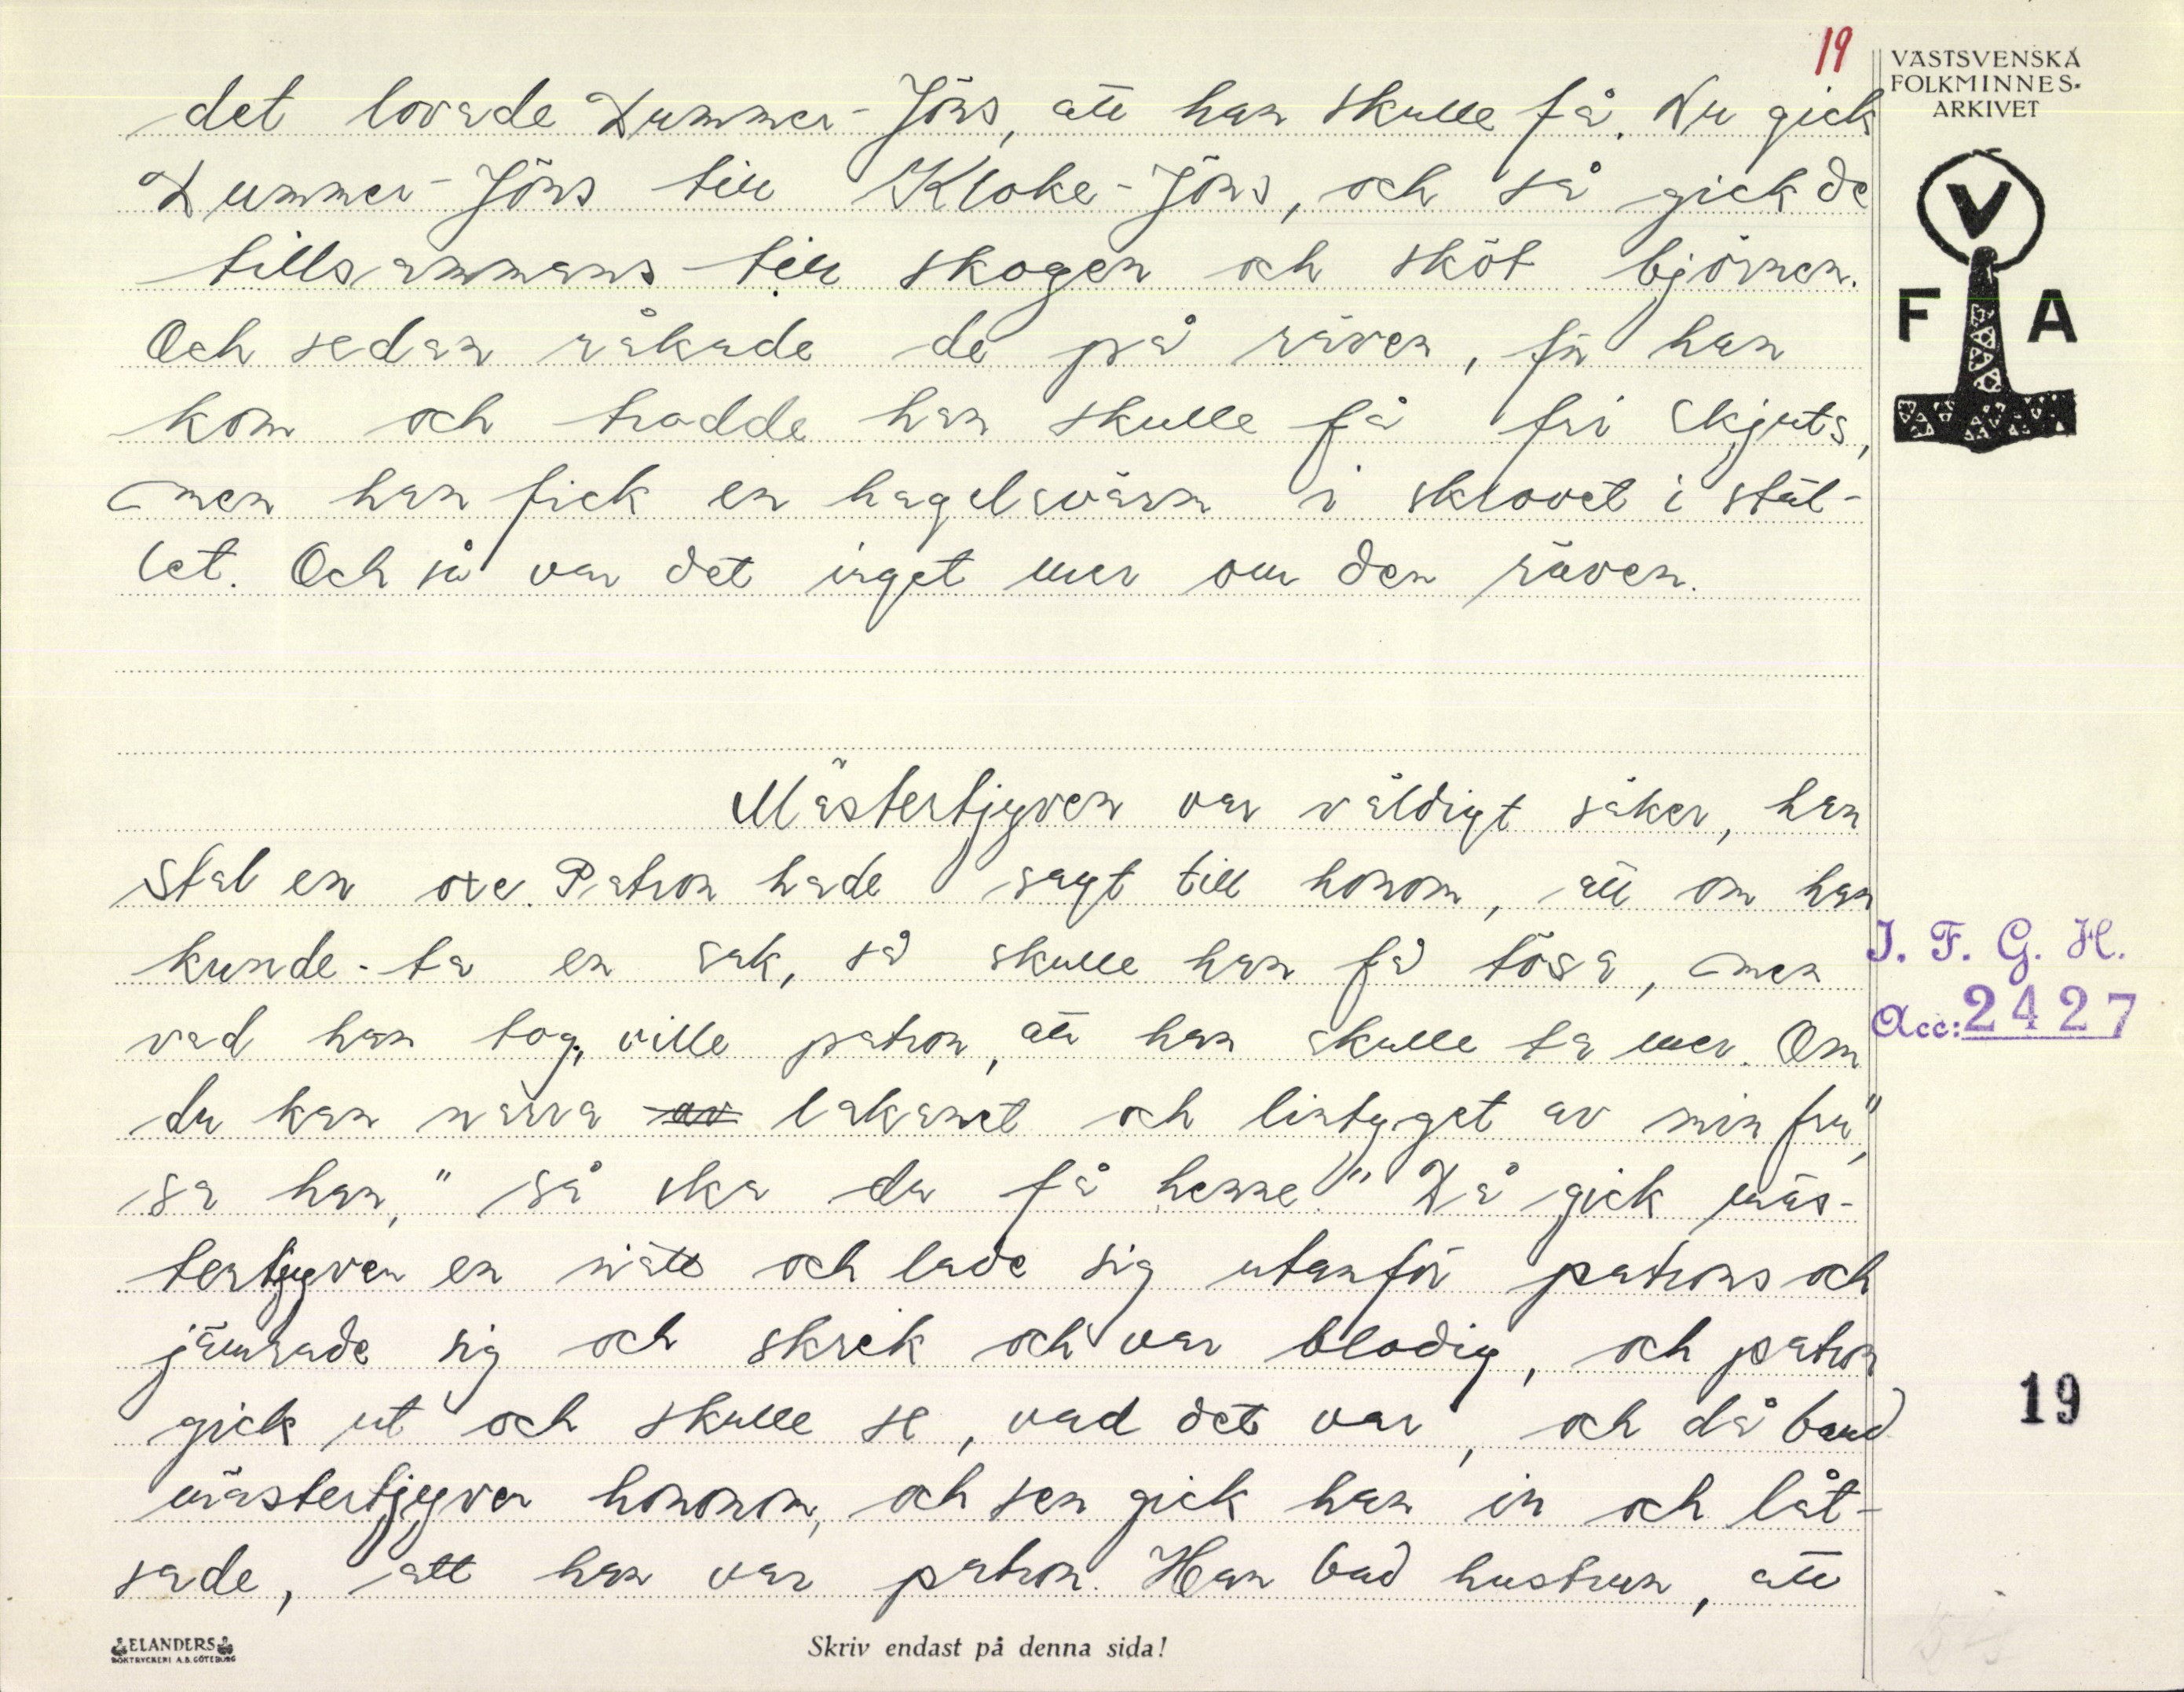 19
VÄSTSVENSKA
FOLKMINNES-
ARKIVET
V
F A
det lovade Dummer-Jöns, att han skulle få. Nu gick
Dummer-Jöns till Kloke-Jöns, och så gick de
tillsammans till skogen och sköt björnen.
Och sedan råkade de på räven, för han
kom och trodde han skulle få fri skjuts,
men han fick en hagelsvärm i skrovet i stäl-
let. Och så var det inget mer om den räven.
Mästertjyven var väldigt säker, han
stal en oxe. Patron hade sagt till honom, att om han
kunde ta en sak, så skulle han få tösa, men
vad han tog, ville patron, att han skulle ta mer. Om
du kan narra av lakanet och lintyget av min fru,"
sa han, "så ska du få henne." Då gick mäs-
tertjyven en nätt och lade sig utanför patrons och
jämrade sig och skrek och var blodig, och patron
gick ut och skulle se, vad det var, och då band
mästertjyven hononom, och sen gick han in och låt-
sade, att han var patron. Han bad hustrun, att
I. F. G. H.
Acc: 2427
19
ELANDERS
BOKTRYCKERI A.B. GÖTEBORG
Skriv endast på denna sida!